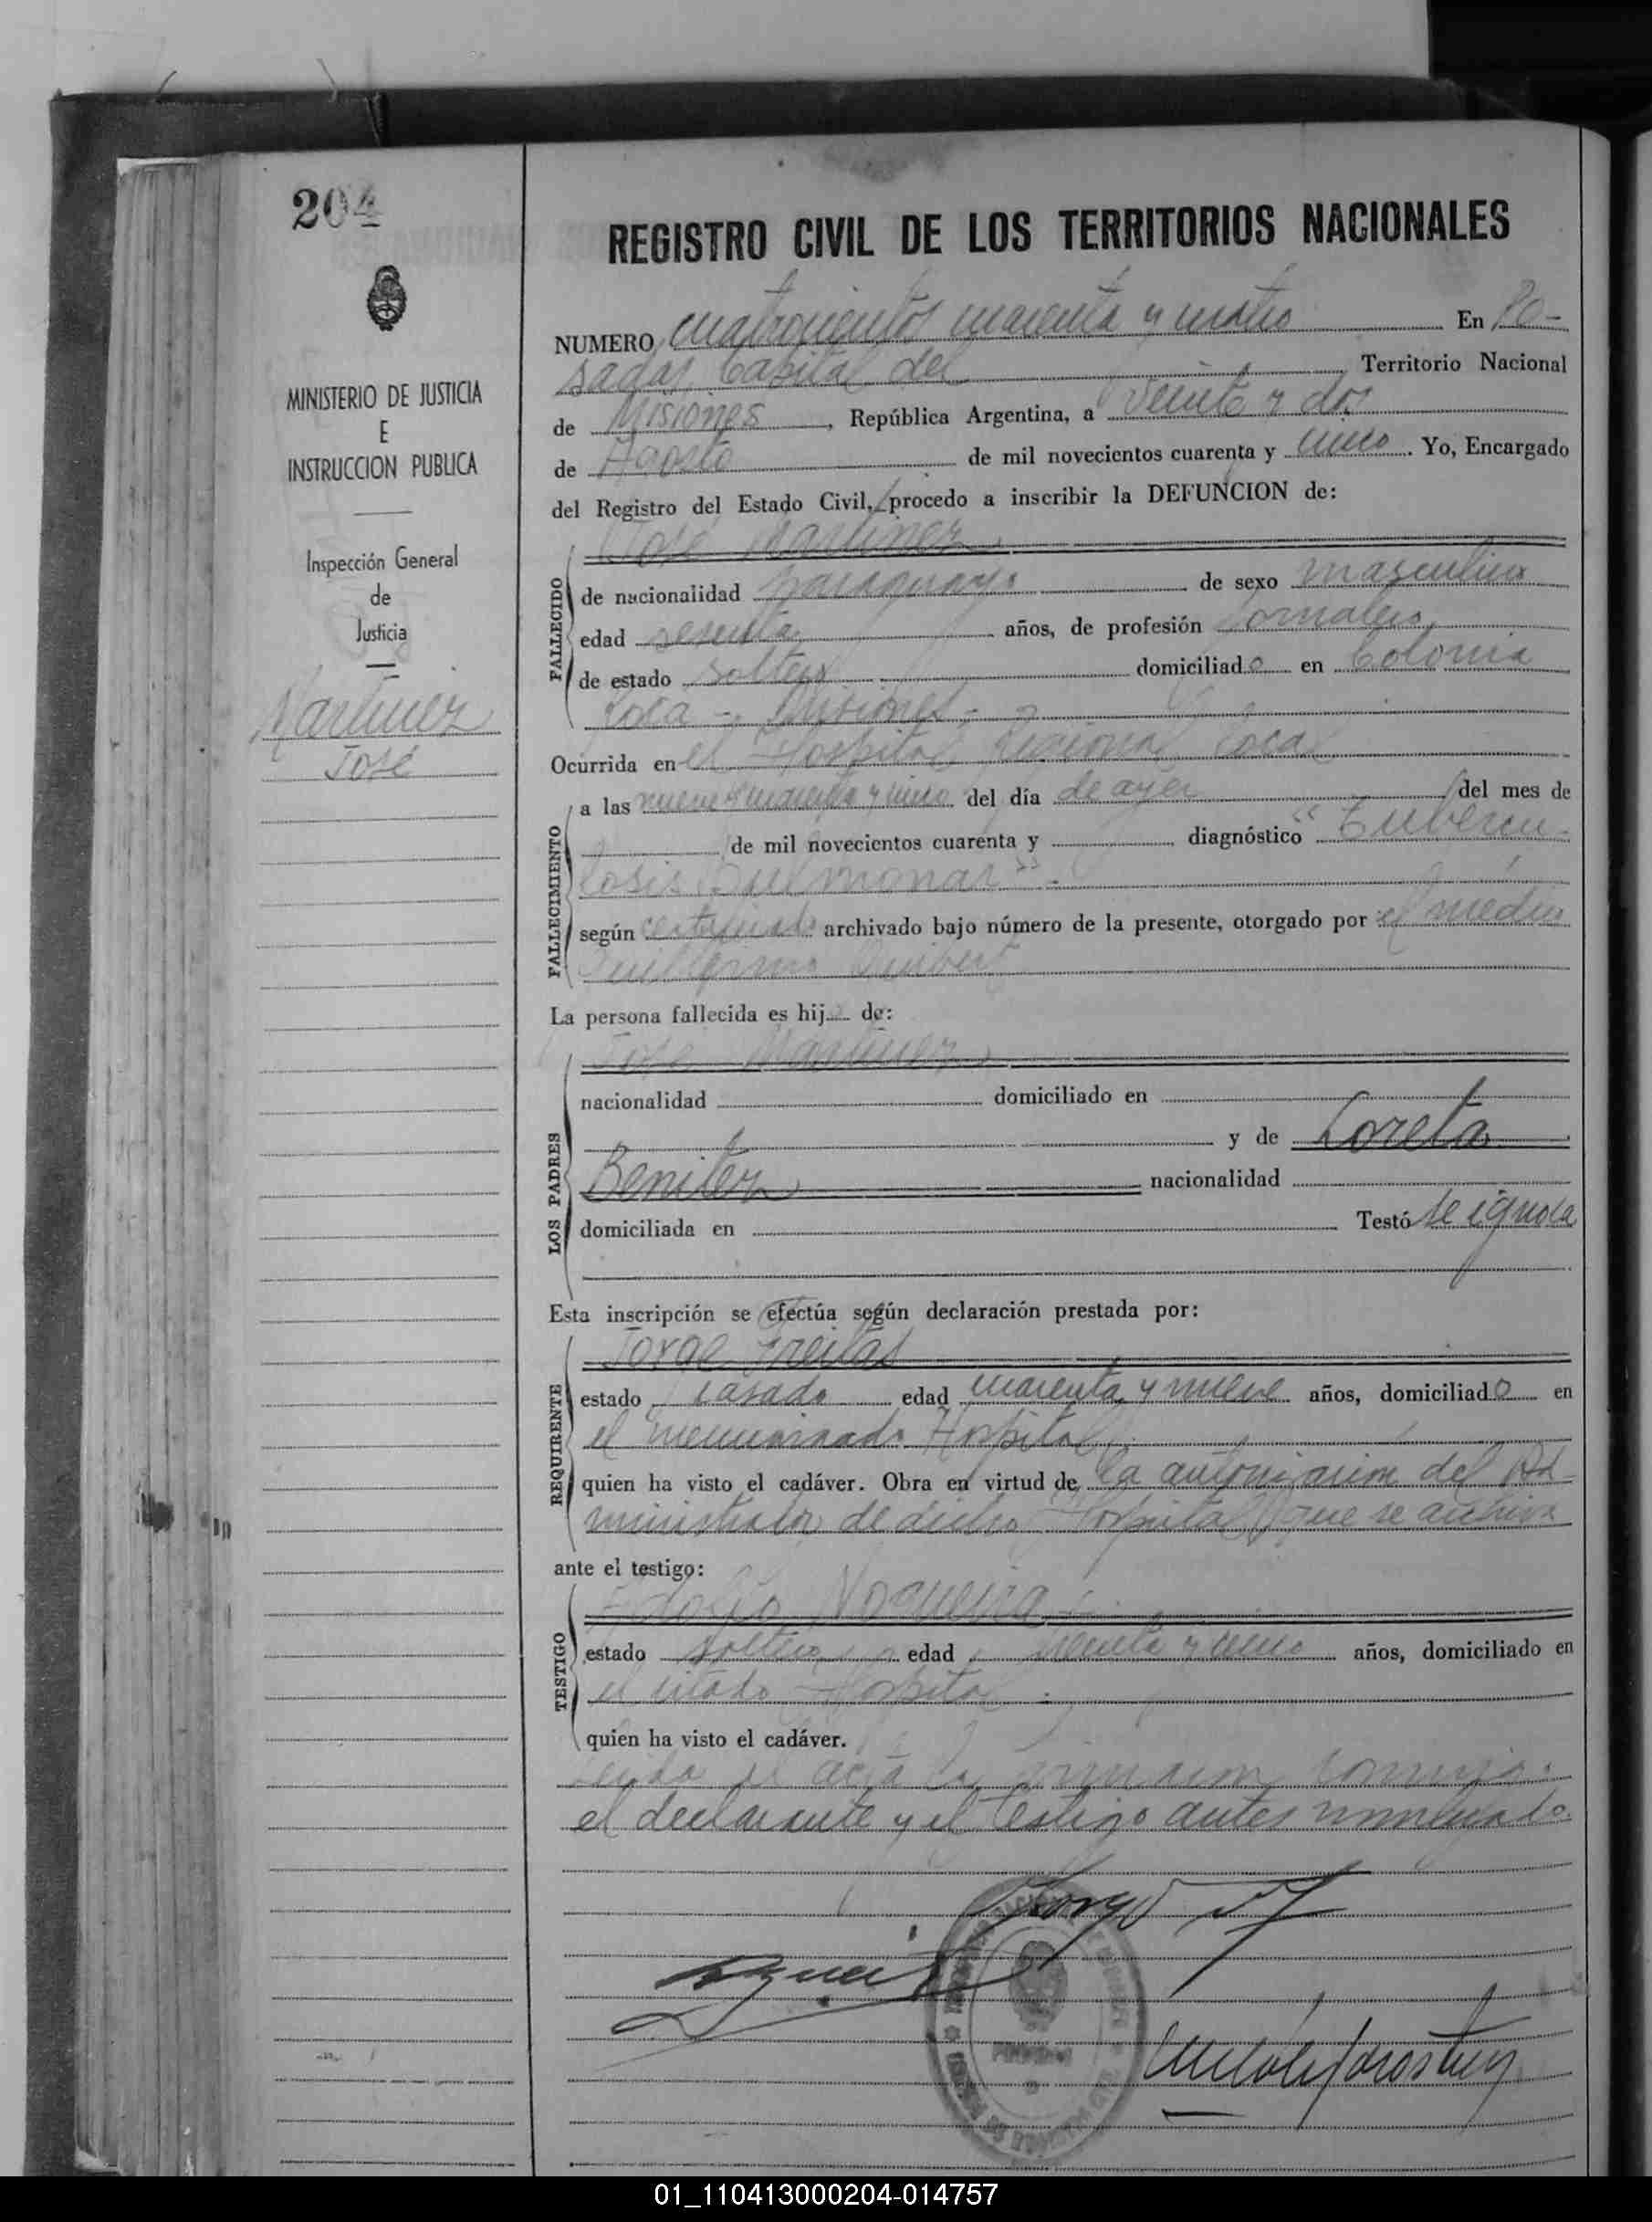 204
MINISTERIO DE JUSTICIA
E
INSTRUCCION PUBLICA
Inspección General
de
Justicia
Martinez
José
REGISTRO CIVIL DE LOS TERRITORIOS NACIONALES
NUMERO cuatrocientos cuarenta y cuatro En Po-
sadas Capital del Territorio Nacional
de Misiones, República Argentina, a veinte y dos
de Agosto de mil novecientos cuarenta y cinco. Yo, Encargado
del Registro del Estado Civil, procedo a inscribir la DEFUNCION de:
José Martinez
FALLECIDO
de nacionalidad paraguayo de sexo masculino
edad sesenta años, de profesión Jornalero
de estado soltero domiciliado en Colonia
Roca - Misiones -
Ocurrida en el Hospital Regional local
FALLECIMIENTO
a las nueve y cuarenta y cinco del día de ayer del mes de
de mil novecientos cuarenta y diagnóstico "Tubercu-
losis Pulmonar".
según certificado archivado bajo número de la presente, otorgado por el medico
Guillermo
La persona fallecida es hij de:
José Martinez
LOS PADRES
nacionalidad domiciliado en
y de Loreta
Benitez nacionalidad
domiciliada en Testó se ignora
Esta inscripción se efectúa según declaración prestada por:
Jorge Freitas
REQUIRENTE
estado casado edad cuarenta y nueve años, domiciliado en
el mencionado Hospital
quien ha visto el cadáver. Obra en virtud de la autorización del Ad-
ministrador de dicho Hospital que se archiva
ante el testigo:
Nogueira
TESTIGO
estado soltero edad treinta y cinco años, domiciliado en
el citado Hospital.
quien ha visto el cadáver.
Leida el acta la firmaron conmigo
el declarante y el testigo antes nombrado.
01_110413000204-014757